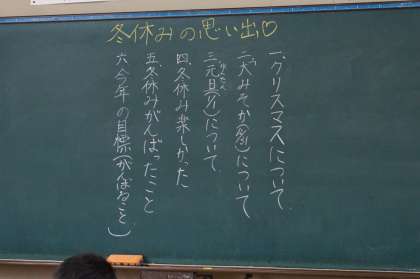 冬休みの思い出♡
一、クリスマスについて
二、大みそか(12/31)について
三、元旦(1/1)について
四、冬休み楽しかった
五、冬休みがんばったこと
六、今年の目標(がんばること。)